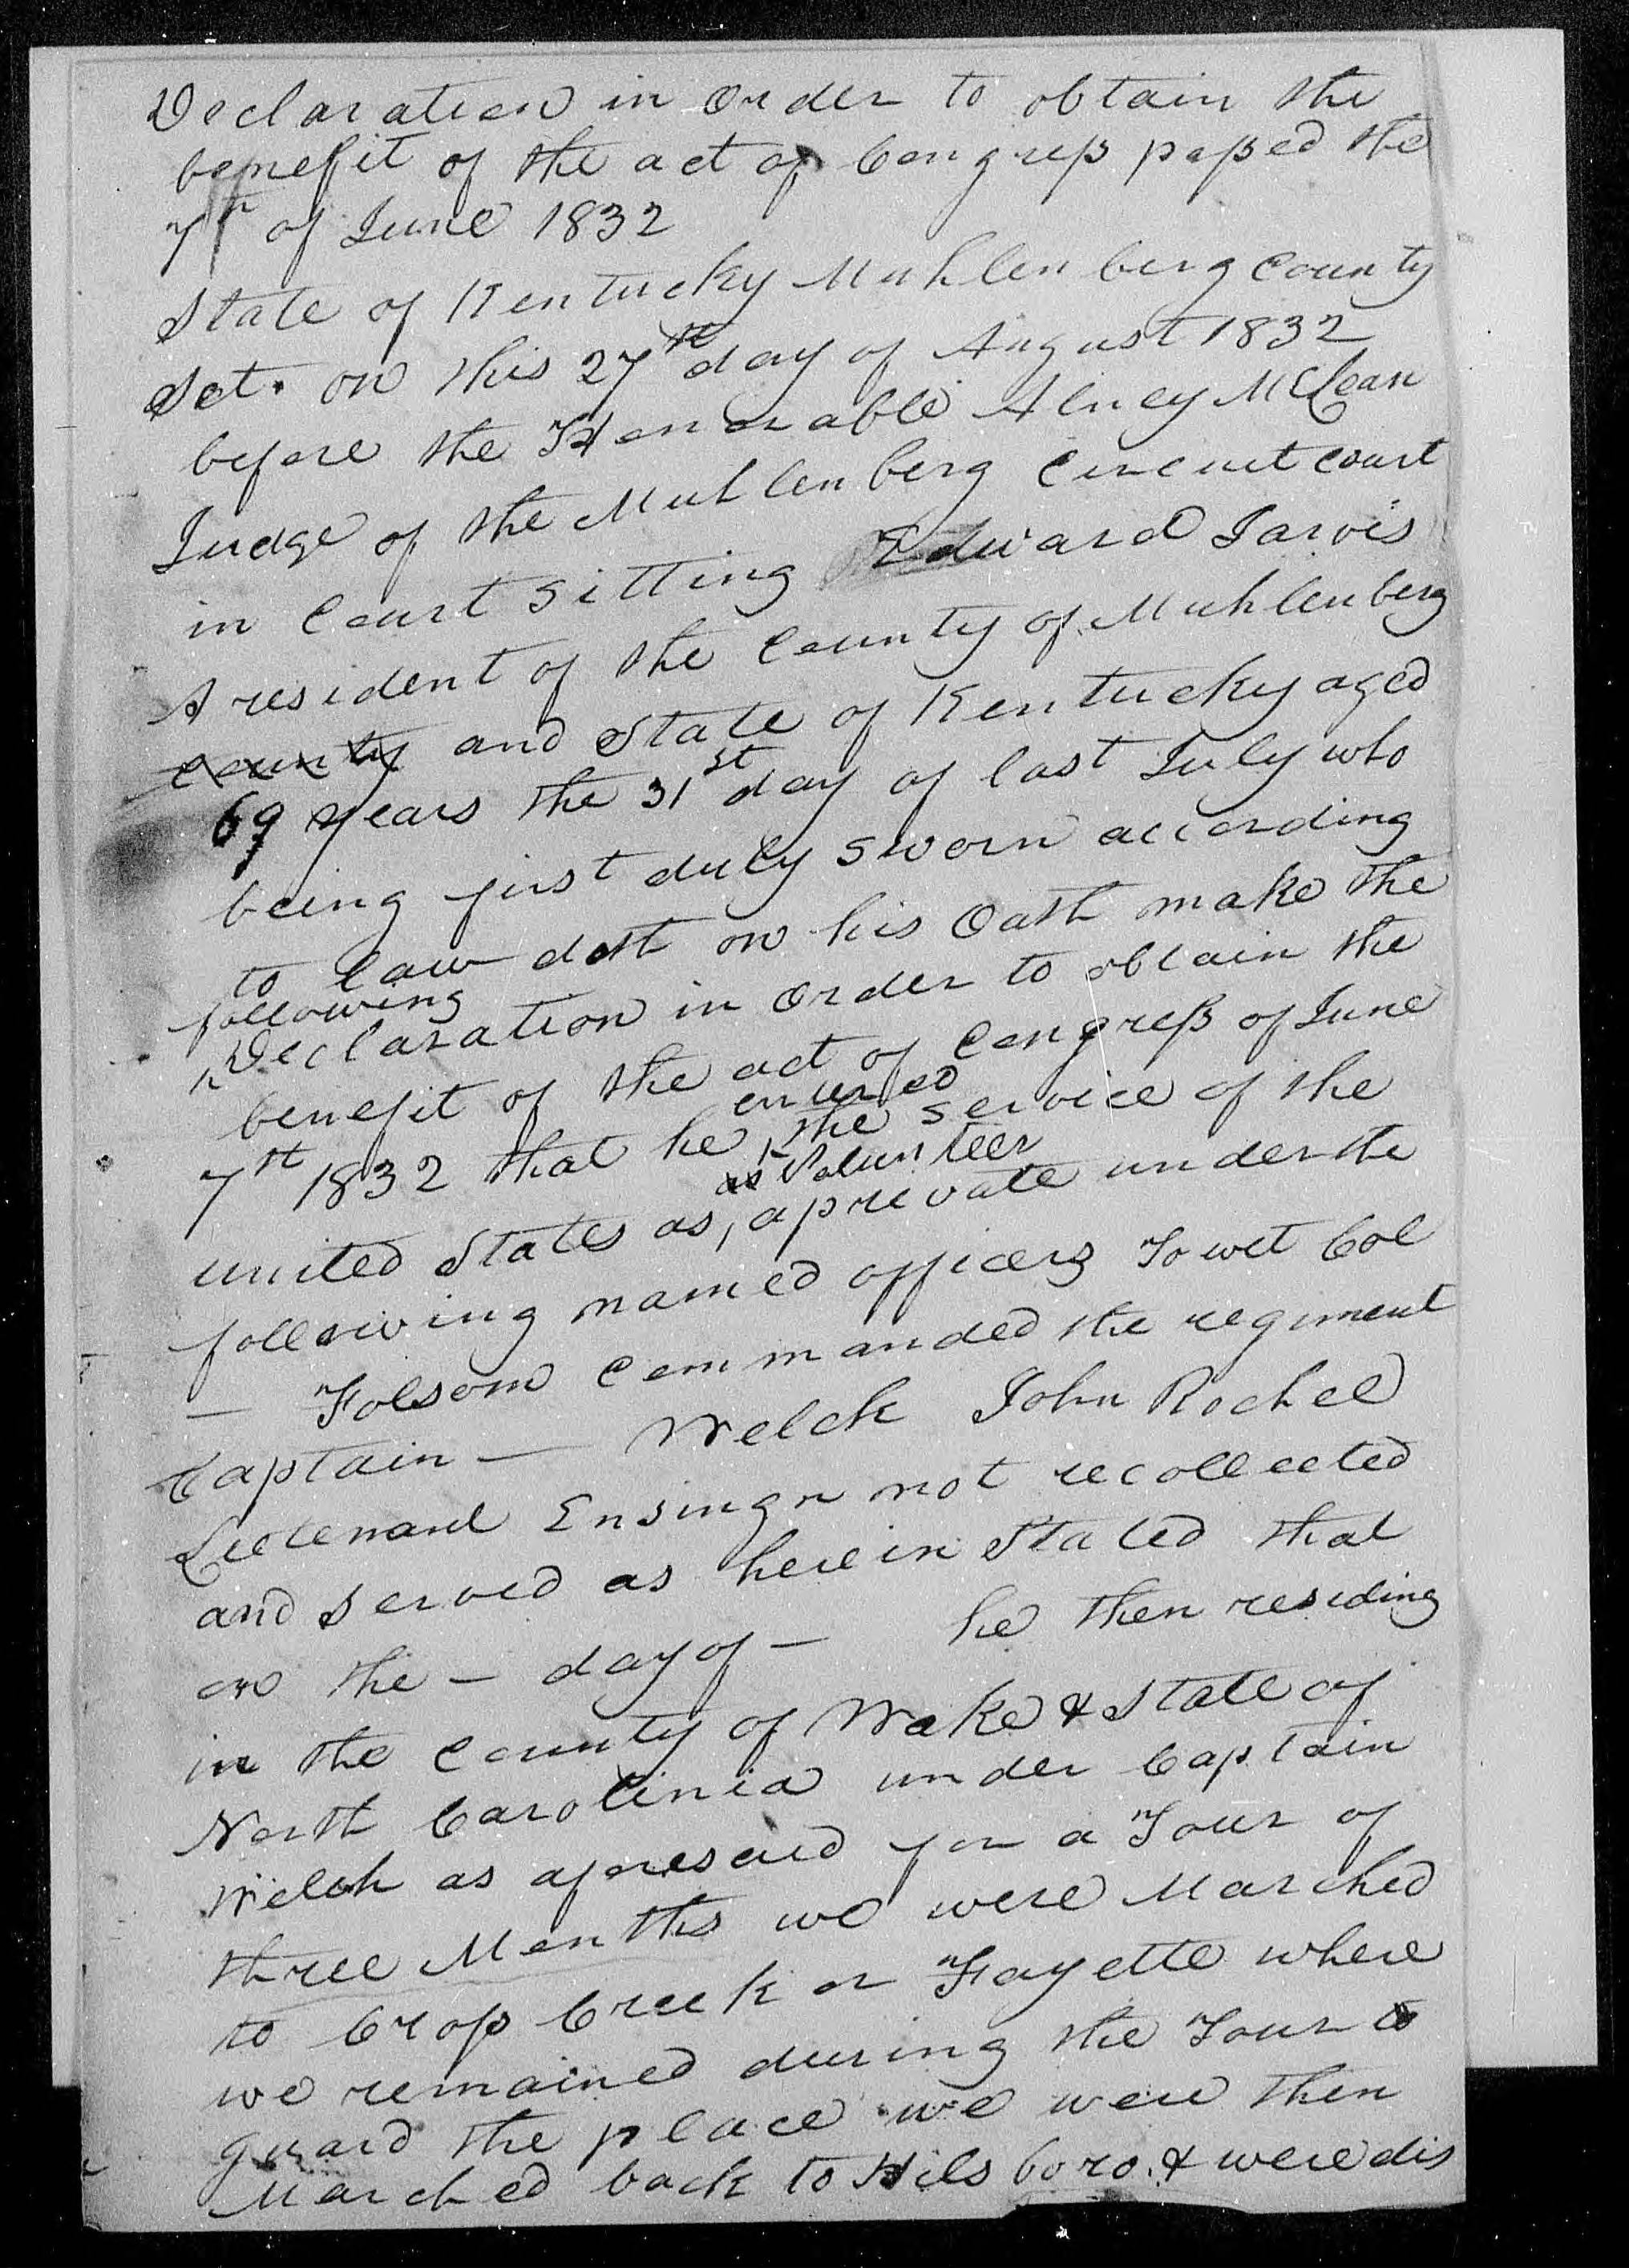 Declaration in order to obtain the
benefit of the act of Congress passed the
7th of June 1832
State of Kentucky Muhlenberg County
Sct. on this 27th day of August 1832
before the Honorable Alney McLean
Judge of the Muhlenberg Circuit Court
in Court sitting Edward Jarvis
A resident of the County of Muhlenberg
County and State of Kentucky aged
69 years the 31st day of last July who
being first duly sworn according
to law doth on his oath make the
following
Declaration in order to obtain the
benefit of the act of Congress of June
entered
7th 1832 that he the service of the
as Volunteer
united States as, a private under the
following named officers Towit Col
— Folsom Commanded the regiment
Captain — Welch John Rochel
Lieutenant Ensingn not recollected
and served as herein Stated that
on the — day of — he then residing
in the County of Wake & State of
North Carolinia under Captain
Welch as aforesaid for a Tour of
three Months we were Marched
to Crop Creek or Fayette where
we remained during the Tour to
guard the place we were then
Marched back to Hilsboro. & were dis